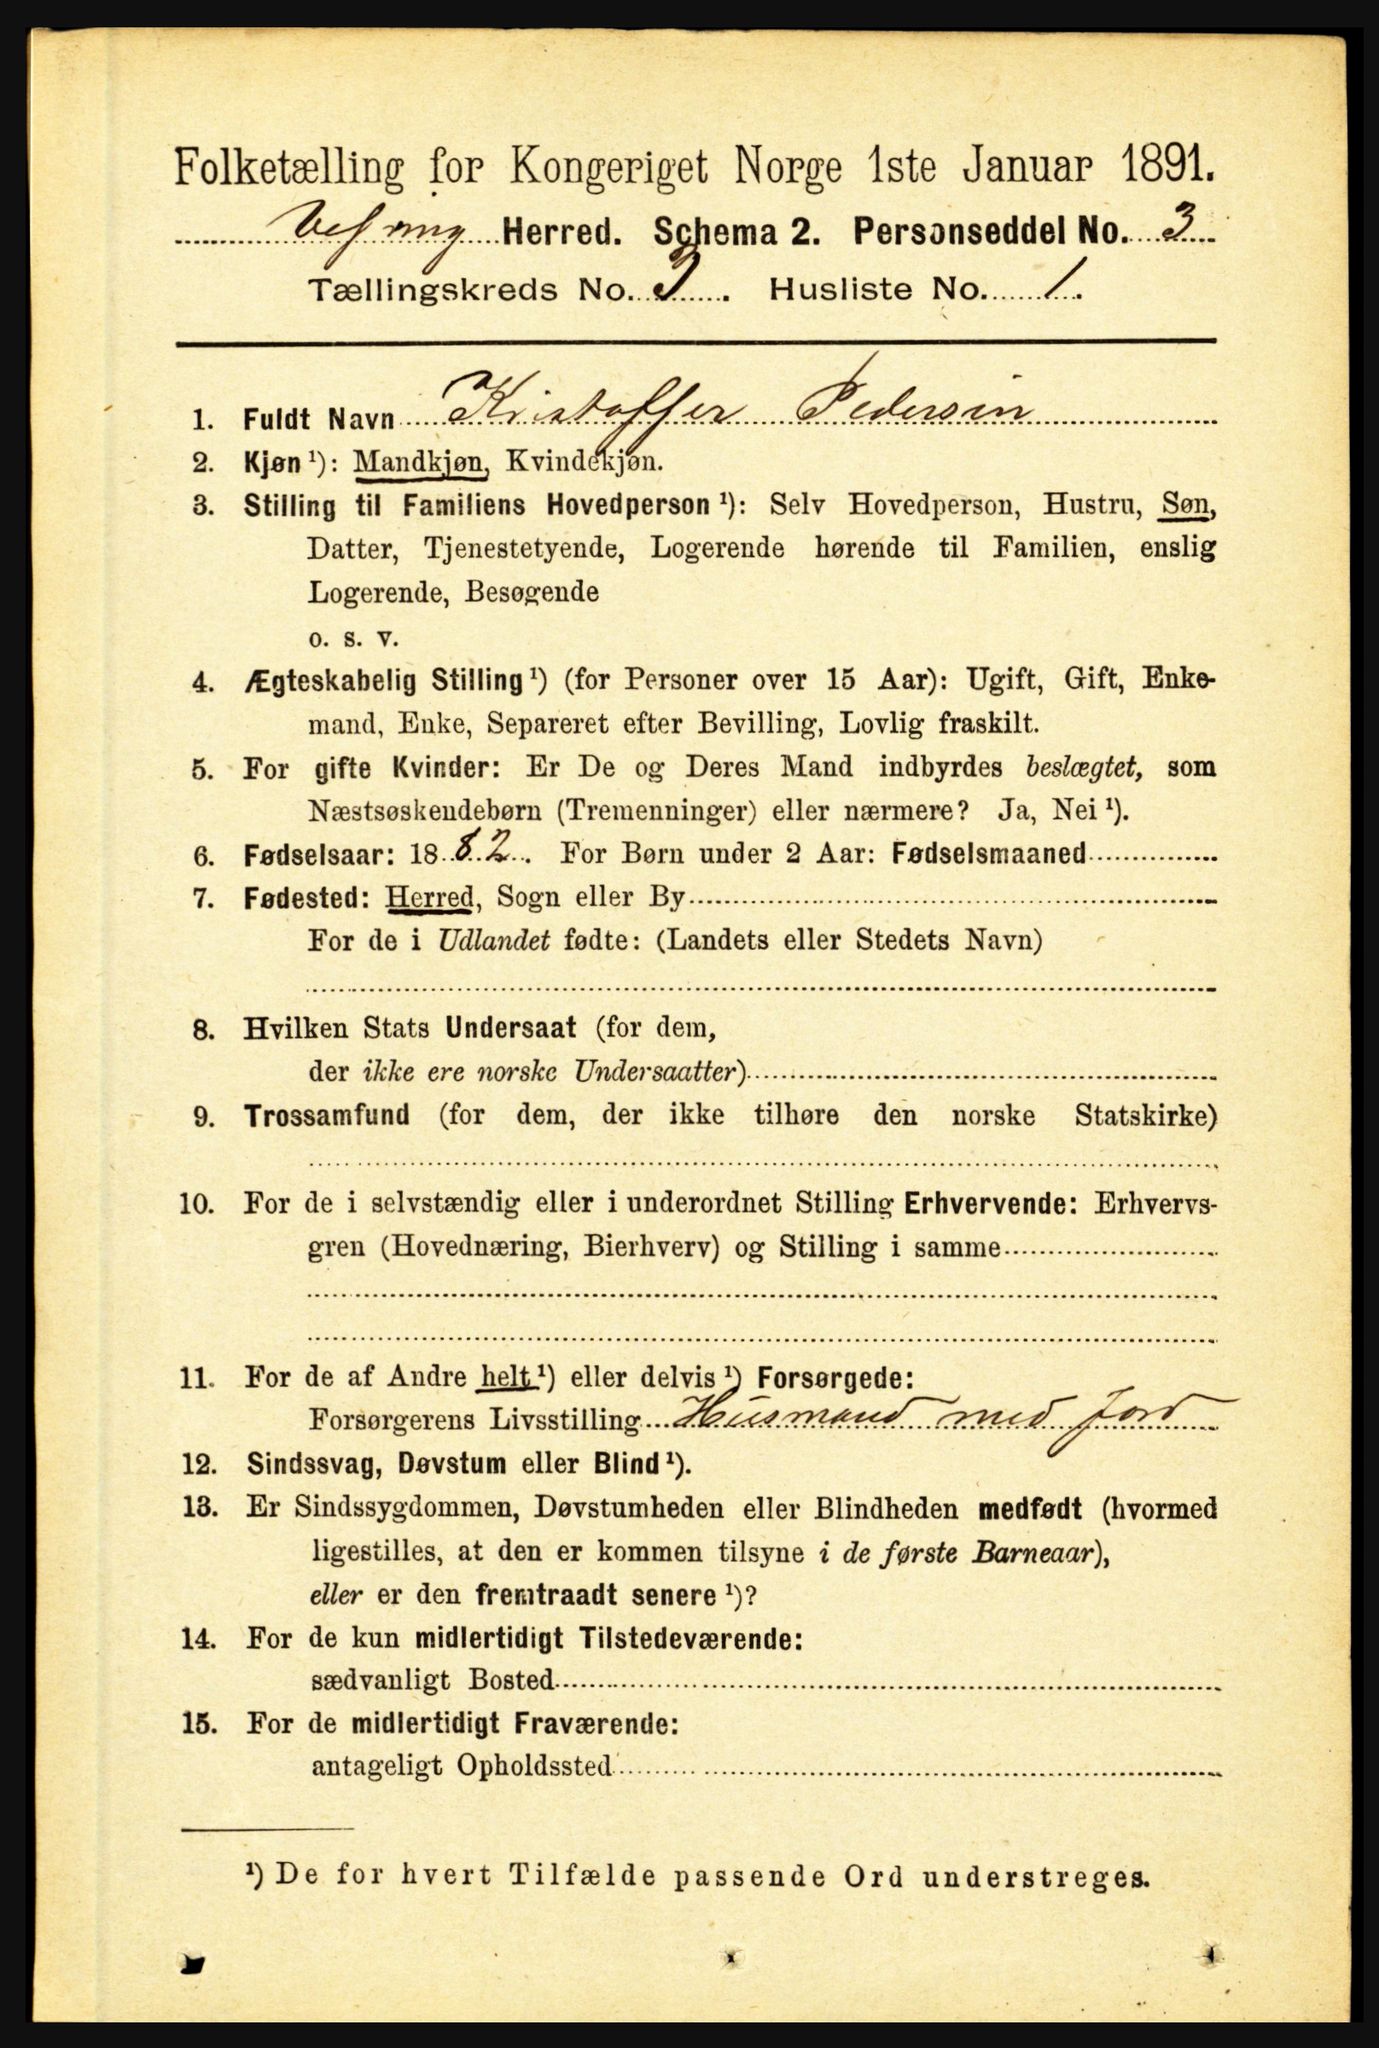 Folketælling for Kongeriget Norge 1ste Januar 1891.
Vefsning Herred. Schema 2. Personseddel No. 3
Tællingskreds No. 3. Husliste No. 1.
1. Fuldt Navn Kristoffer Pedersen
2. Kjøn ¹): Mandkjøn, Kvindekjøn.
3. Stilling til Familiens Hovedperson ¹): Selv Hovedperson, Hustru, Søn,
Datter, Tjenestetyende, Logerende hørende til Familien, enslig
Logerende, Besøgende
o. s. v.
4. Ægteskabelig Stilling ¹) (for Personer over 15 Aar): Ugift, Gift, Enke-
mand, Enke, Separeret efter Bevilling, Lovlig fraskilt.
5. For gifte Kvinder: Er De og Deres Mand indbyrdes beslægtet, som
Næstsøskendebørn (Tremenninger) eller nærmere? Ja, Nei ¹).
6. Fødselsaar: 1882. For Børn under 2 Aar: Fødselsmaaned
7. Fødested: Herred, Sogn eller By
For de i Udlandet fødte: (Landets eller Stedets Navn)
8. Hvilken Stats Undersaat (for dem,
der ikke ere norske Undersaatter)
9. Trossamfund (for dem, der ikke tilhøre den norske Statskirke)
10. For de i selvstændig eller i underordnet Stilling Erhvervende: Erhvervs-
gren (Hovednæring, Bierhverv) og Stilling i samme
11. For de af Andre helt ¹) eller delvis ¹) Forsørgede:
Forsørgerens Livsstilling Husmand med Jord
12. Sindssvag, Døvstum eller Blind ¹).
13. Er Sindssygdommen, Døvstumheden eller Blindheden medfødt (hvormed
ligestilles, at den er kommen tilsyne i de første Barneaar),
eller er den fremtraadt senere ¹)?
14. For de kun midlertidigt Tilstedeværende:
sædvanligt Bosted
15. For de midlertidigt Fraværende:
antageligt Opholdssted
¹) De for hvert Tilfælde passende Ord understreges.